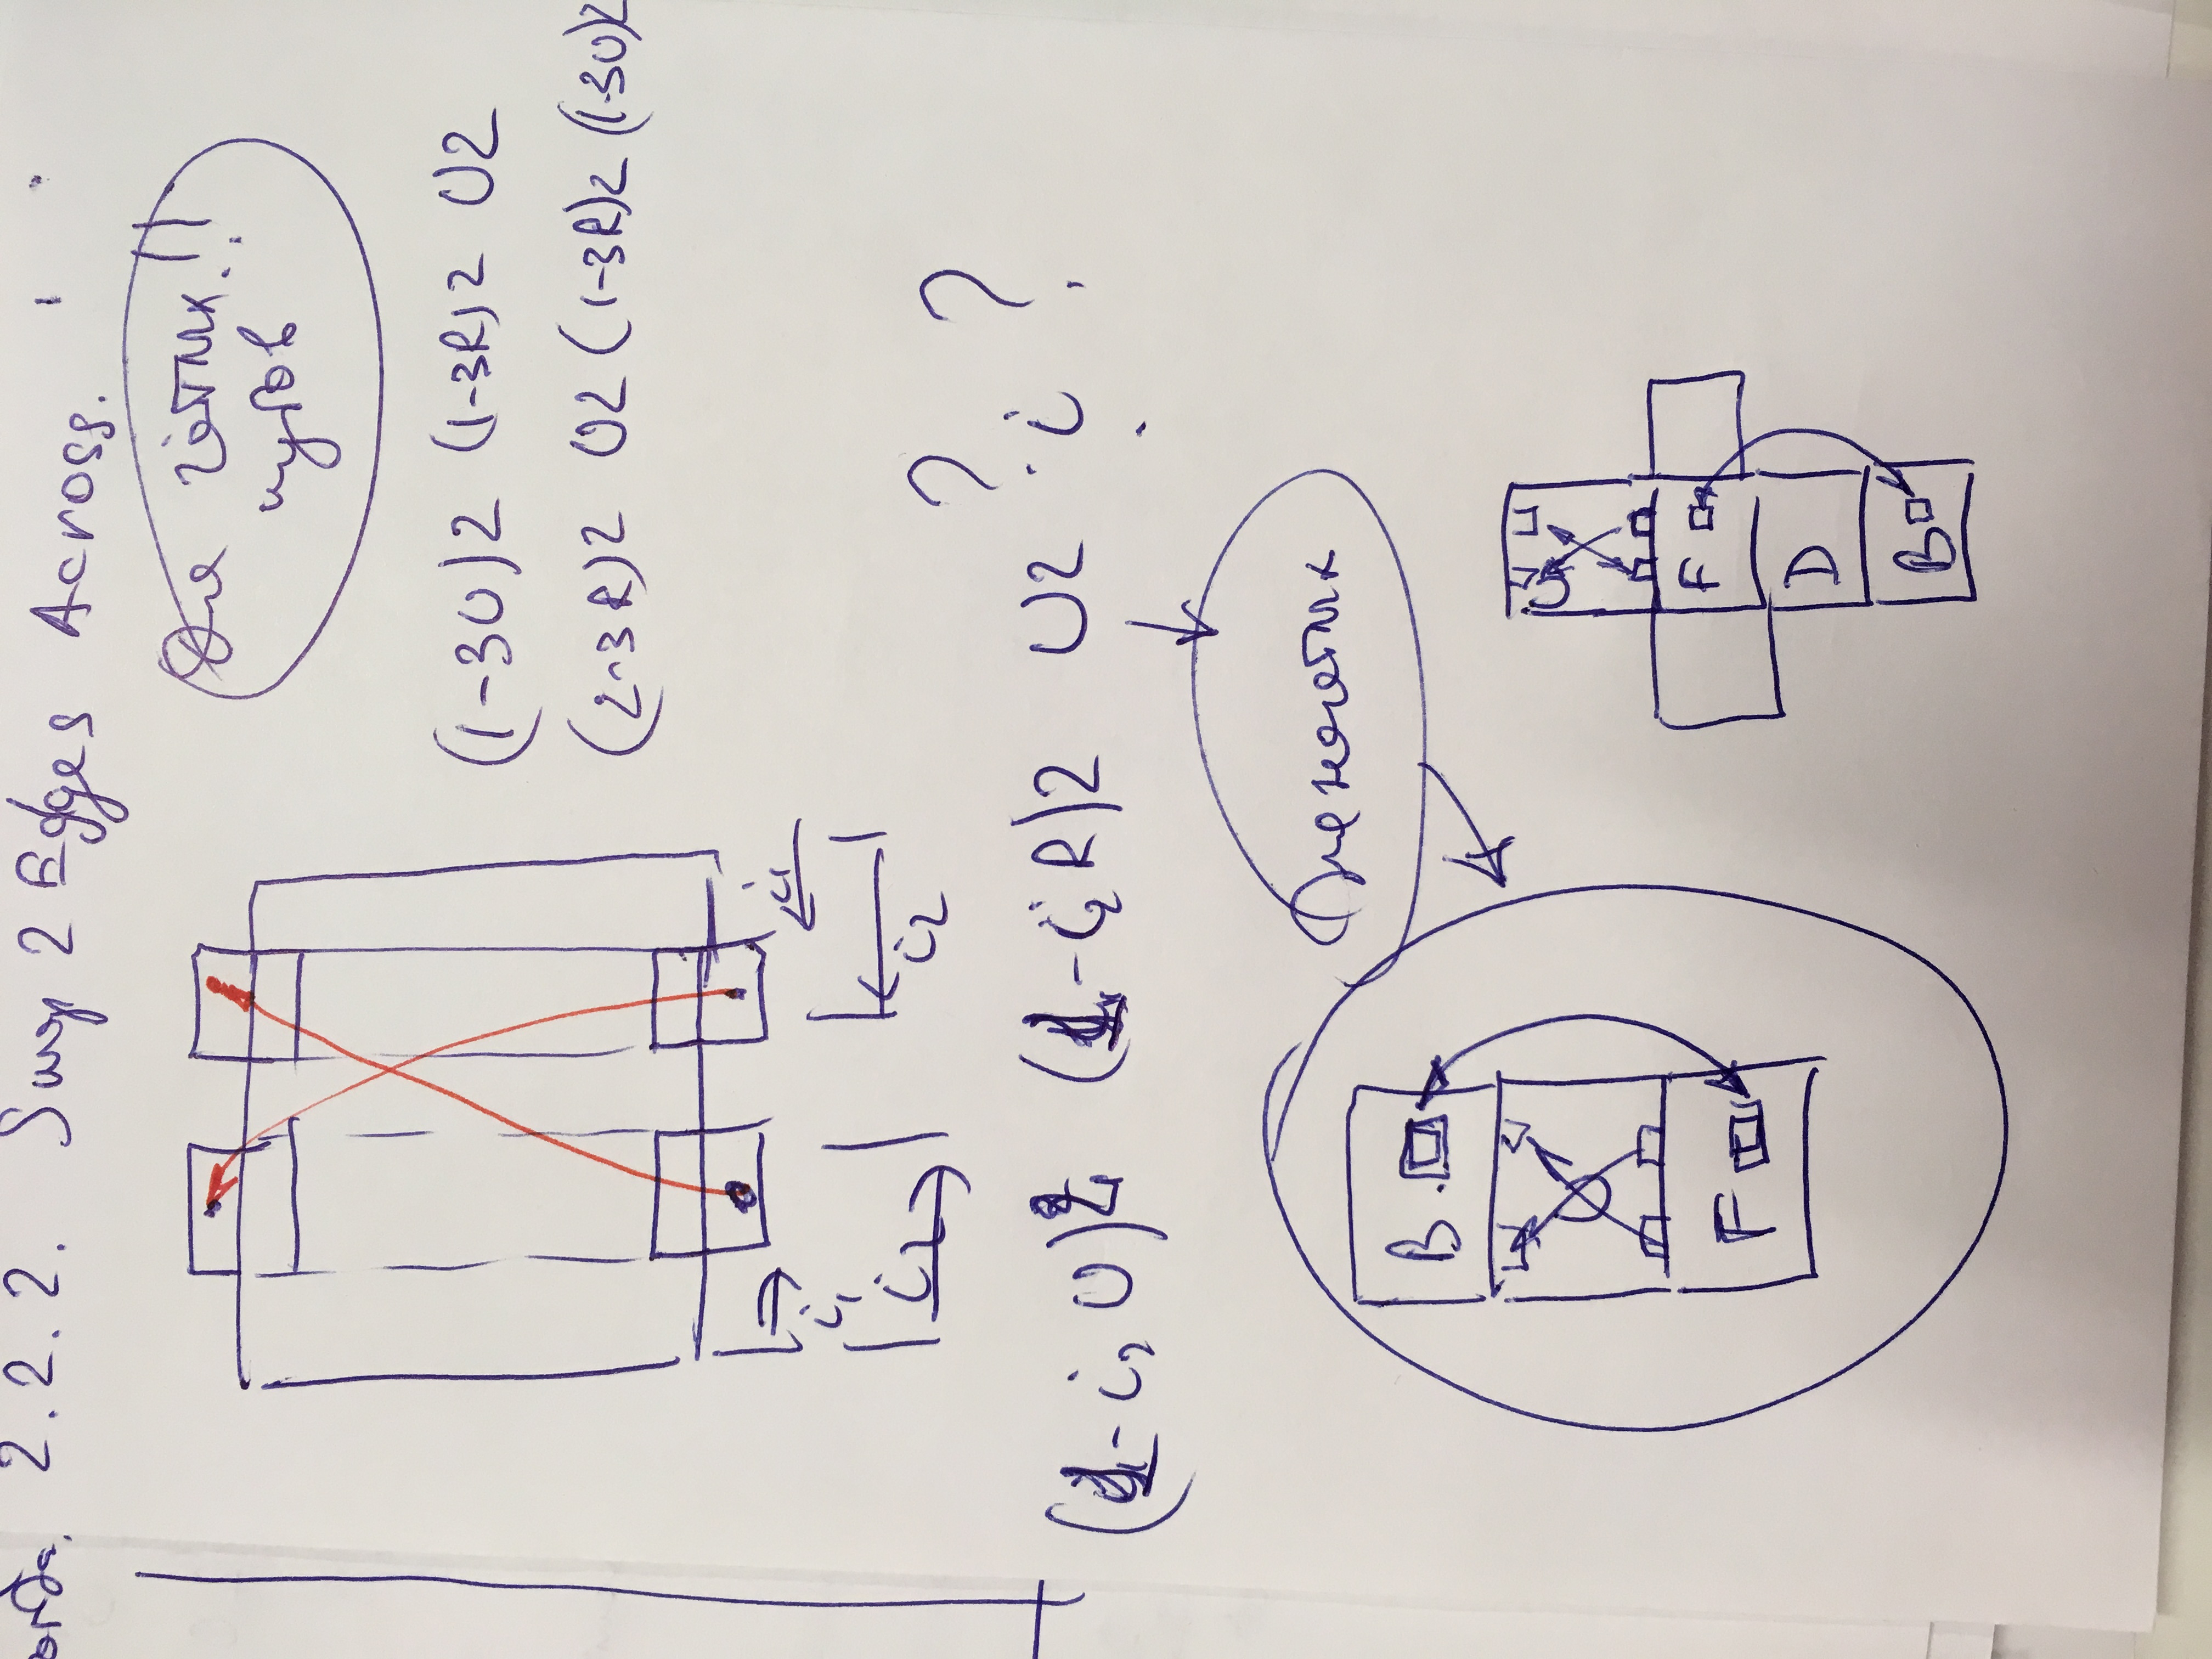 2.2.2. Swap 2 Edges Across.
Для чётных!!
кубов
(1-3U)2 (1-3R)2 U2
(2-3R)2 U2 (1-3R)2 (1-3U)2
i1
i1
i2
i2
(1-i2 U)2 (1-i2 R)2 U2 ? i ?
Для нечетных
B
F
U
F
D
B